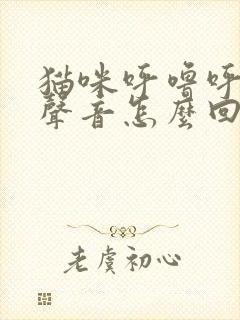 猫咪呼嚕呼
聲音怎麼回
老虞初心